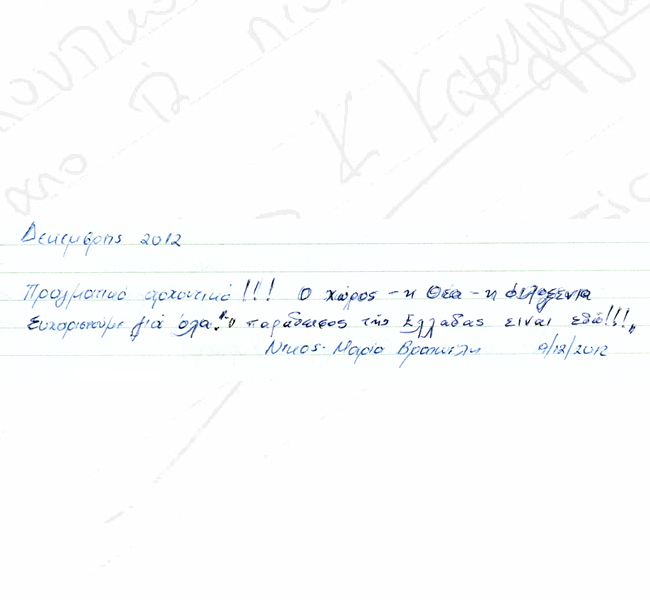 από
Κ Καρα
Δεκεμβρης 2012
Πραγματικό αρχοντικό!!! Ο χώρος - η Θέα - η φιλοξενία
Ευχαριστούμε για όλα. "Ο παράδεισος της Ελλάδας είναι εδώ!!!"
Νίκος - Μαρία 9/12/2012